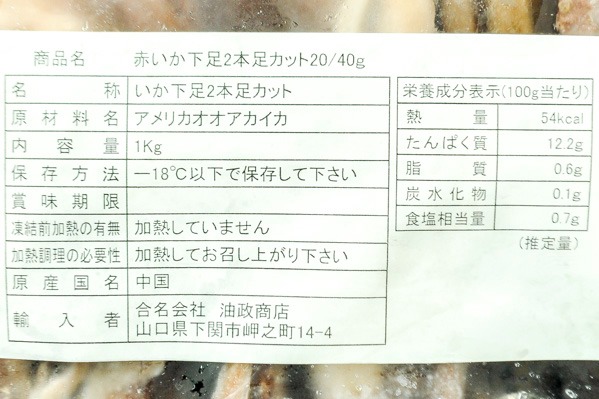 商品名 赤いか下足2本足カット20/40g
名称 いか下足2本足カット
原材料名 アメリカオオアカイカ
内容量 1Kg
保存方法 －18℃以下で保存して下さい
賞味期限
凍結前加熱の有無 加熱していません
加熱調理の必要性 加熱してお召し上がり下さい
原産国名 中国
輸入者 合名会社 油政商店
山口県下関市岬之町14-4
栄養成分表示(100g当たり)
熱量 54kcal
たんぱく質 12.2g
脂質 0.6g
炭水化物 0.1g
食塩相当量 0.7g
(推定量)